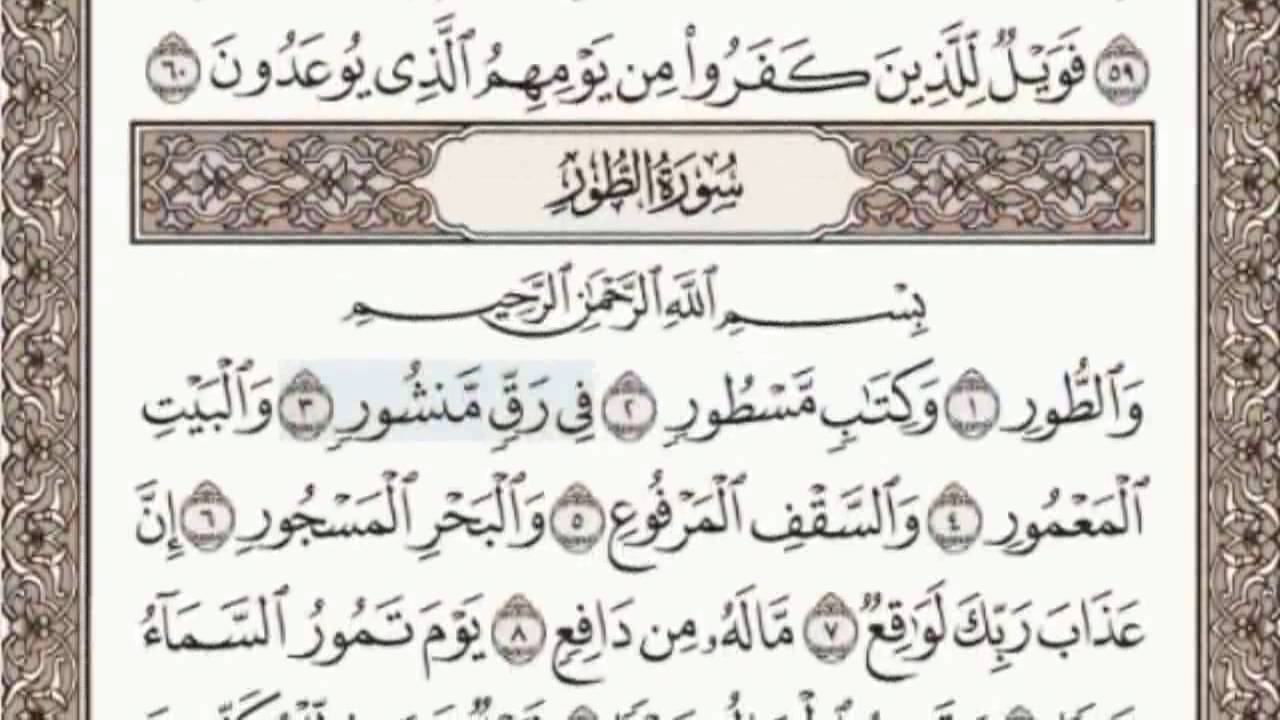 ٥٩ فَوَيْلٌ لِّلَّذِينَ كَفَرُوا۟ مِن يَوْمِهِمُ ٱلَّذِى يُوعَدُونَ ٦٠
سُورَةُ الطُّورِ
بِسْمِ ٱللَّهِ ٱلرَّحْمَٰنِ ٱلرَّحِيمِ
وَٱلطُّورِ ١ وَكِتَٰبٍ مَّسْطُورٍ ٢ فِى رَقٍّ مَّنشُورٍ ٣ وَٱلْبَيْتِ
ٱلْمَعْمُورِ ٤ وَٱلسَّقْفِ ٱلْمَرْفُوعِ ٥ وَٱلْبَحْرِ ٱلْمَسْجُورِ ٦ إِنَّ
عَذَابَ رَبِّكَ لَوَٰقِعٌ ٧ مَّا لَهُۥ مِن دَافِعٍ ٨ يَوْمَ تَمُورُ ٱلسَّمَآءُ